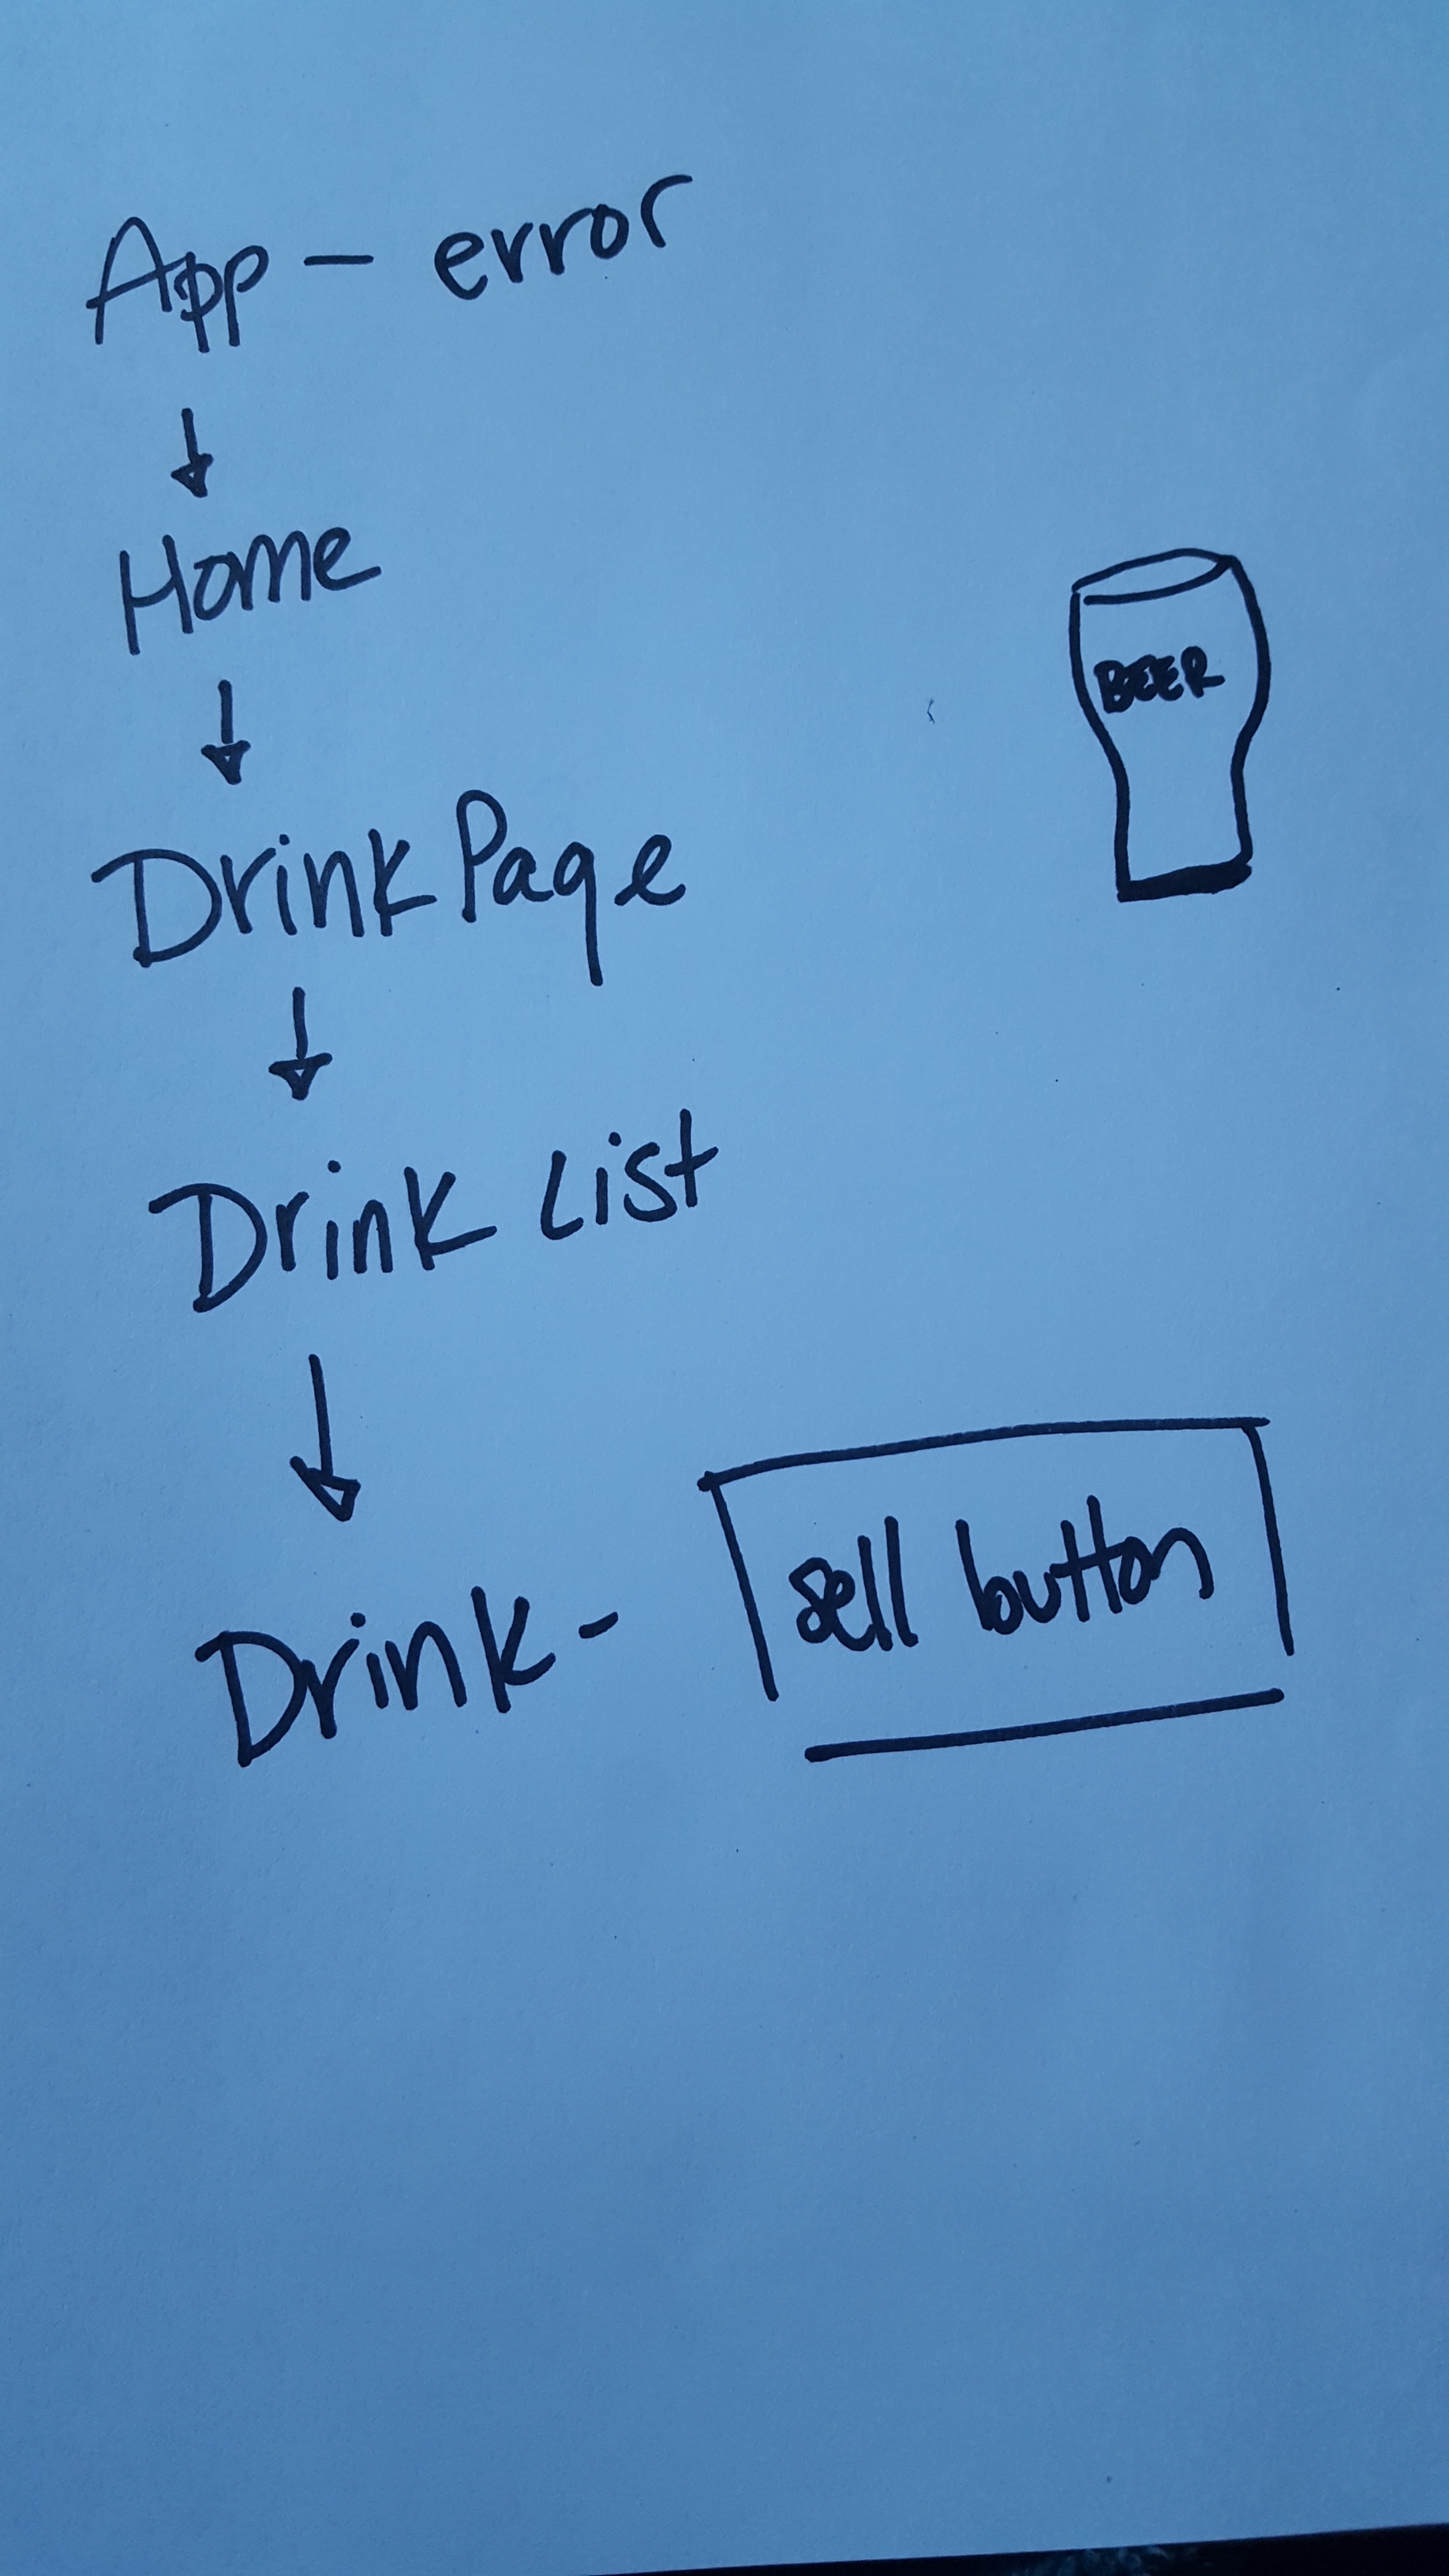 App - error
Home
BEER
Drink Page
Drink List
Drink - sell button